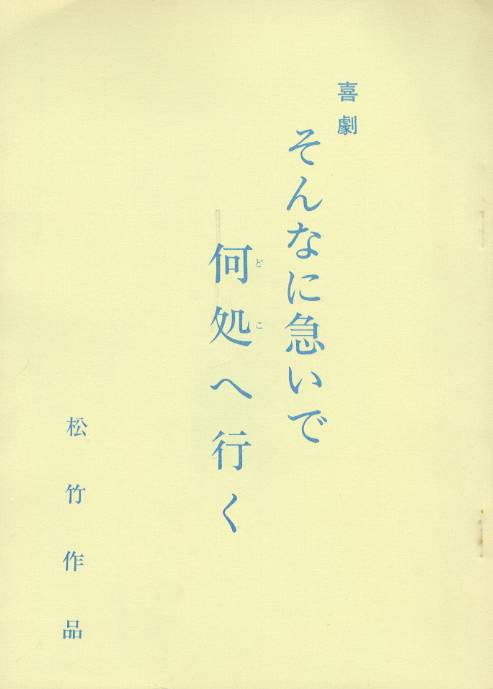 喜劇
そんなに急いで
何処へ行く
どこ
松竹作品